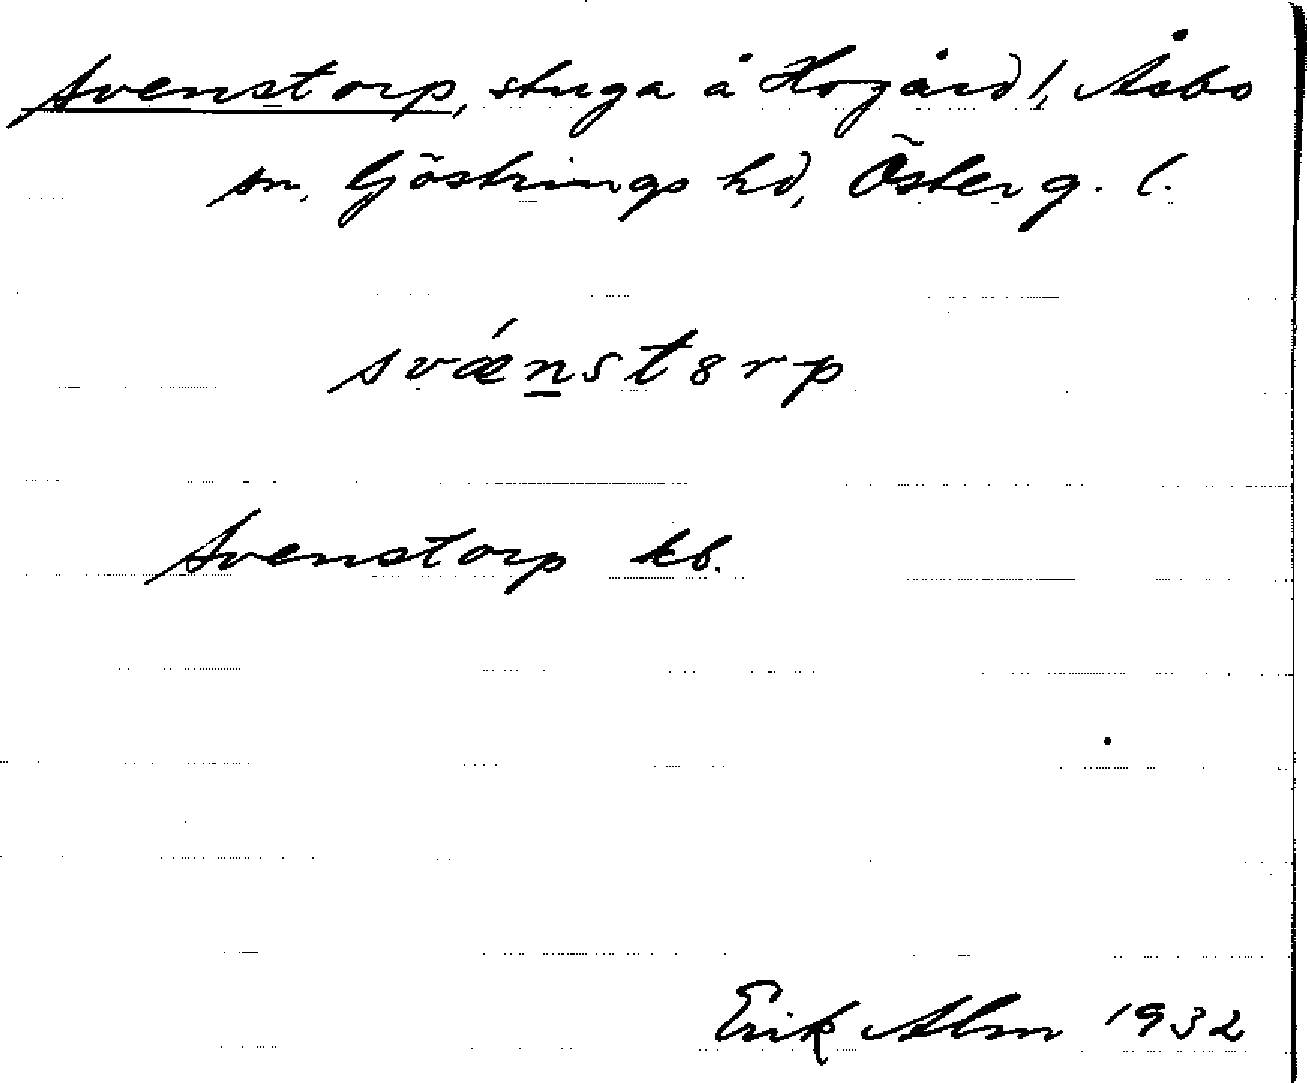 Svenstorp, stuga å Hogård 1, Åsbo
sn, Göstrings hd, Österg. l.
svǽnst8rp
Svenstorp kb.
Erik Alm 1932